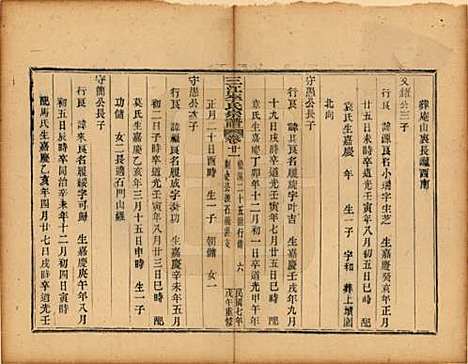 葬庵山裏長隴西南
又鎔公三子
行良 諱源良名小璜字生芝 生嘉慶癸亥年正月
廿五日寅時 卒道光壬寅年八月初五日巳時 配
袁氏生嘉慶 年 生一子 字和 葬上墳園
北向
守愚公長子
行良 諱 良名履 字叶吉 生嘉慶壬戌年九月
十九日戌時卒道光壬寅年七月廿五日辰時 配
章氏生嘉慶丁卯年二月初一日卒道光甲午年
三江 氏宗譜 卷廿 六 民國七年戊午重修
正月二十日酉時 生一子 朝儲 女一
守愚公次子
行良 諱 良名履成字 功 生嘉慶辛未年五月
初二日子時卒道光壬寅年八月廿三日巳時 配
莫氏生嘉慶 年三月十五日申時 生一子
功儲 女二長適石門山羅
守德公長子
行良 諱福良名履綏字可歸 生嘉慶庚午年八月
初五日辰時卒同治辛未年十二月初四日寅時
配馬氏生嘉慶乙亥年四月廿七日戌時卒道光壬